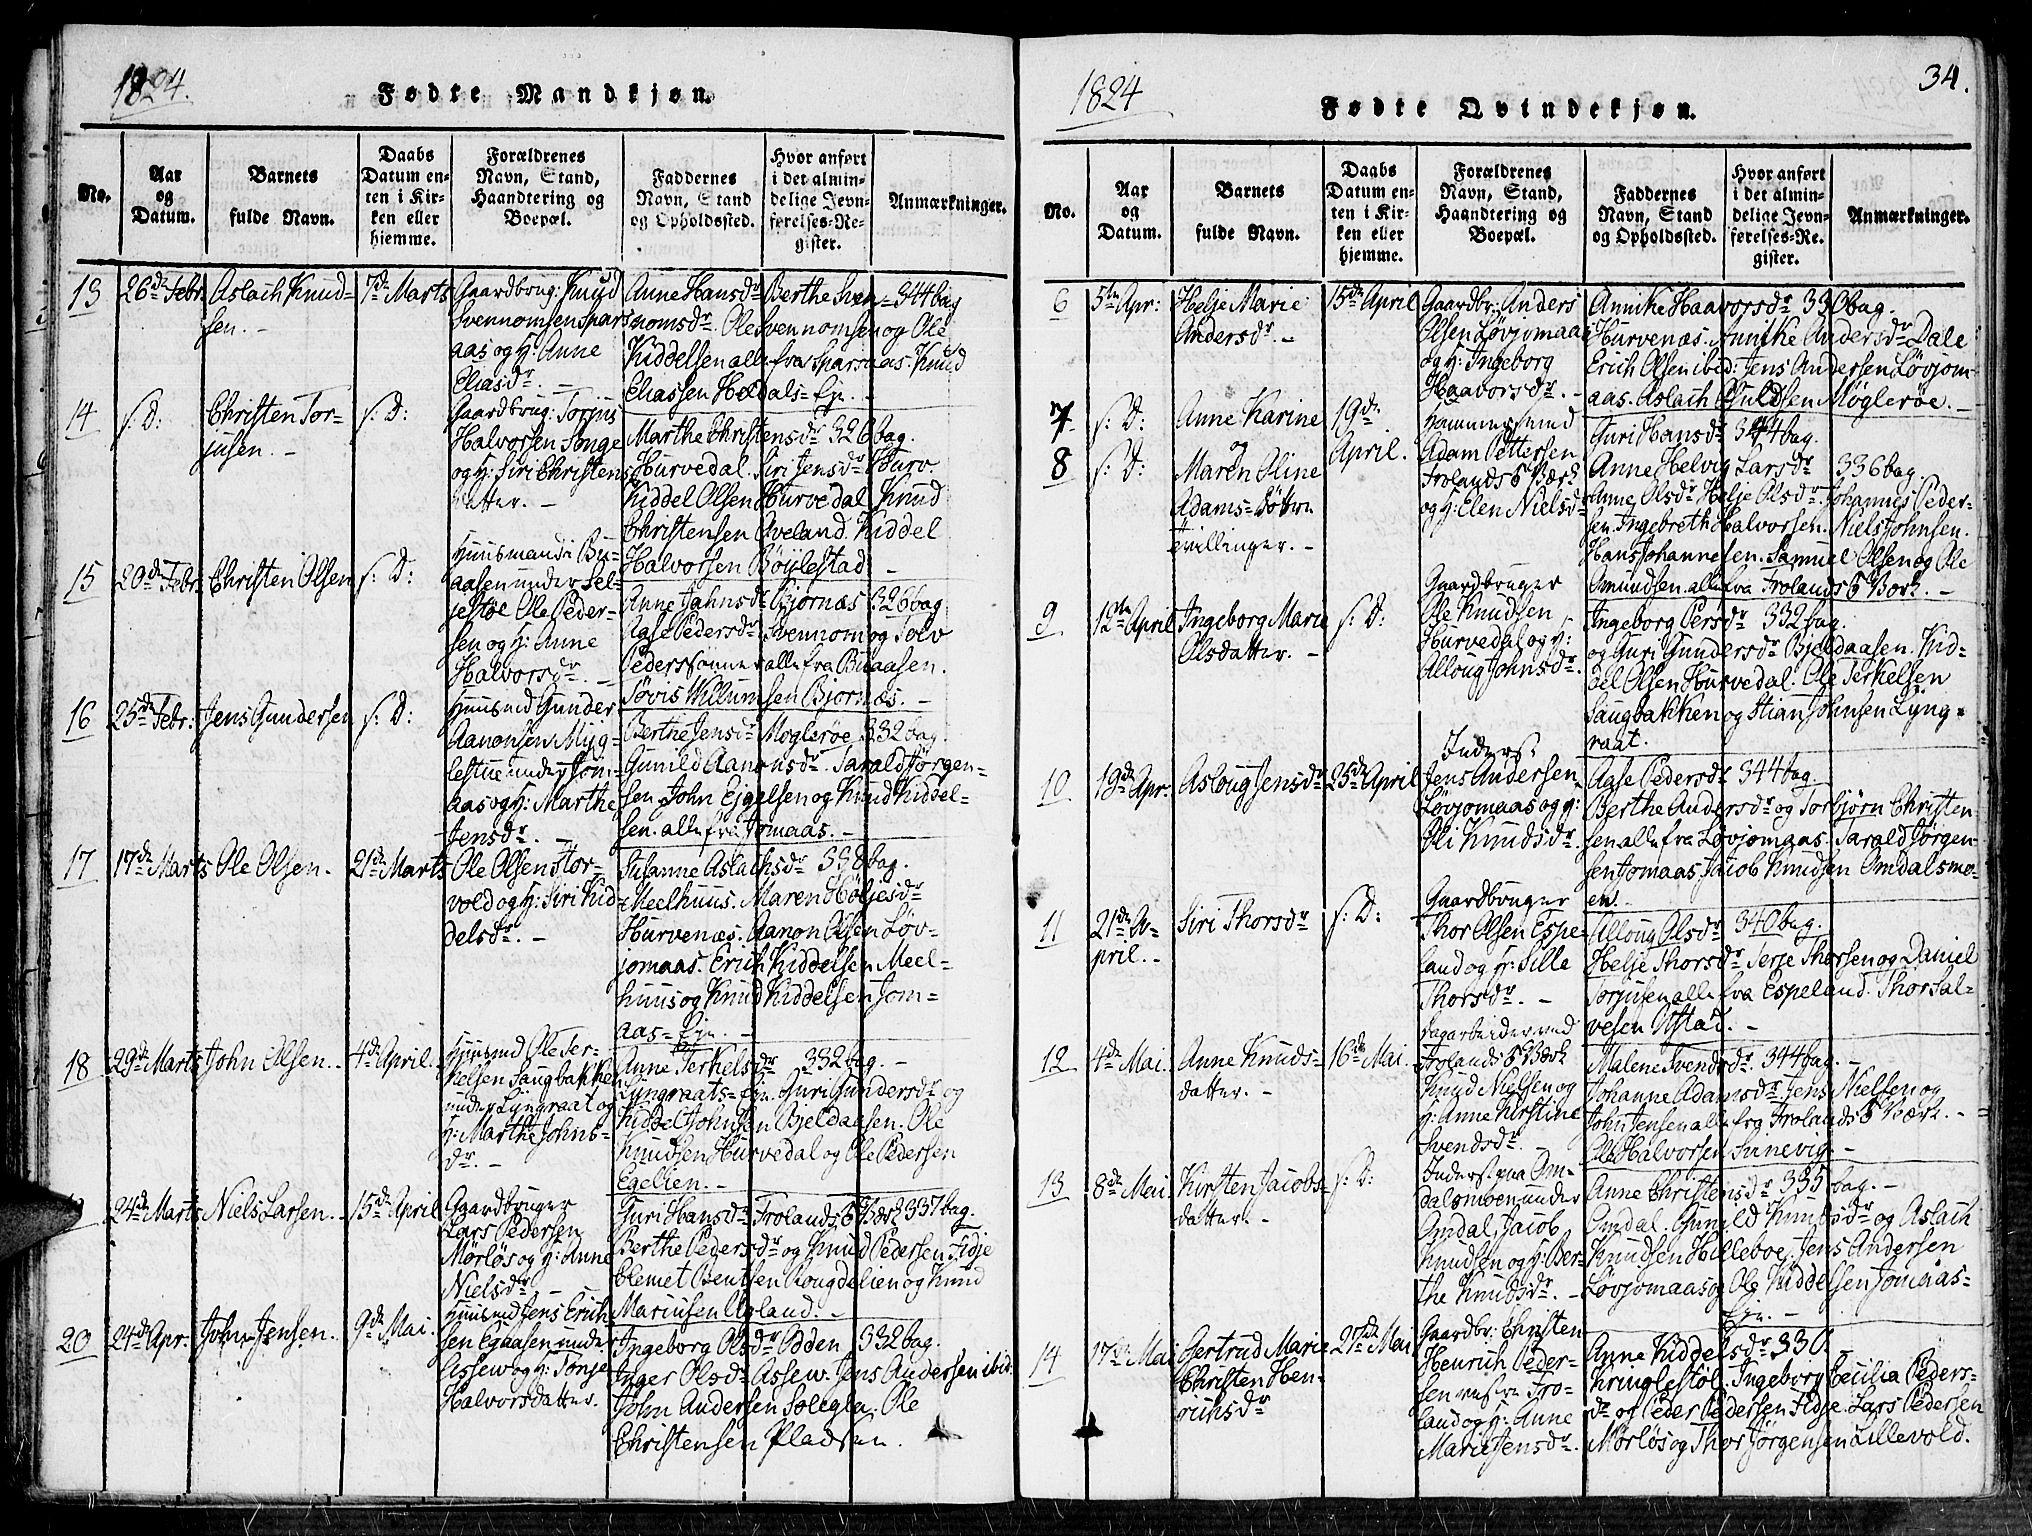 1824.
Fødte Mandkjøn.
No.
Aar og Datum.
Barnets fulde Navn.
Daabs Datum enten i Kirken eller hjemme.
Forældrenes Navn, Stand, Haandtering og Boepæl.
Faddernes Navn, Stand og Opholdssted.
Hvor anført i det almindelige Jevnførelses-Register.
Anmærkninger.
13
26de Febr.
Aslach Knud-
sen. -
7de Marts
Gaardbrug: Knud
Svennomsen Spars
aas og H: Anne
Eliasdr. -
Anne Hansdr Berthe Sven = 344 bag
nomsdr. Ole Svennomsen og Ole
Kiddelsen alle fra Sparsaas. Knud
Eliassen Heldals- Eje -
14
s: D:
Christen Tor-
jusen. -
s: D:
Gaardbrug: Torjus
Halvorsen Songe
og H: Siri Christens
datter. -
Marthe Christensdr 326 bag.
Hurvedal. Siri Jensdr Hurv.
Kiddel Olsen Hurvedal Knud
Christensen Oveland. Kiddel
Halvorsen Bøylestad -
15
20de Febr:
Christen Olsen
s: D:
Huusmand i Bu-
aasen under Sel-
jestøe Ole Peder-
sen og H: Anne
Halvorsdr. -
Anne Jahnsdr Bjørnæs 326 bag
Aase Pedersdr Svennom og Tolv
Peders sønner alle fra Buaasen.
Søvis Willumsen Bjørnæs. -
16
25de Febr:
Jens Gundersen
s: D:
Huusmd Gunder
Aanonsen Myg-
lestue under Jom-
aas og H: Marthe
Jensdr. -
Berthe Jensdr Møglerøe 332 bag.
Gunild Aanonsdr. Tarald Jørgen-
sen John Ejgelsen og Knud Kiddel-
sen. alle fra Jomaas. -
17
17de Marts
Ole Olsen.
21de Marts
Ole Olsen Stor-
vold og H: Siri Kid-
delsdr. -
Susanne Aslachsdr 338 bag.
Meelhuus. Maren Høljesdr
Hurvenæs. Aanon Olsen Løv-
jomaas. Erich Kiddelsen Meel-
huus og Knud Kiddelsen Jom-
aas- Eje. -
18
29de Marts
John Olsen.
4de April.
Huusmd Ole Ter-
kelsen Saugbakken
under Lyngraat og
H: Marthe Johns-
dr. -
Anne Terkelsdr 332 bag. -
Lyngraats- Eje. Guri Gundersdr og
Kiddel Johnsen Bjeldaasen. Ole
Knudsen Hurvedal og Ole Pedersen
Egelien. -
24de Marts
Niels Larsen.
15de April
Gaardbruger
Lars Pedersen
Mørløs og H: Anne
Nielsdr. -
Guri Hansdr Frolands Værk 337 bag.
Berthe Pedersdr og Knud Pedersen Fidje
Clemet Bentsen Rougdelien og Knud
Mariusen Ugland. -
20
24de Apr.
John Jensen.
9de Mai.
Huusmd Jens Erich-
sen Egaasen under
Assew og H: Tonje
Halvorsdatter.
Ingeborg Olsdr Odden 332 bag.
Inger Olsdr Assew. Jens Andersen ibid.
John Andersen Solegla. Ole
Christensen Pladsen.
1824
34.
Fødte Qvindekjøn.
No.
Aar og Datum.
Barnets fulde Navn.
Daabs Datum enten i Kirken eller hjemme.
Forældrenes Navn, Stand, Haandtering og Boepæl.
Faddernes Navn, Stand og Opholdssted.
Hvor anført i det almindelige Jevnførelses-Register.
Anmærkninger.
6
5te Apr:
Helje Marie
Andersdr. -
15de April
Gaardbr: Anders
Olsen Løvjomaas
og H: Ingeborg
Haavorsdr. -
Annike Haavorsdr 330 bag.
Hurvenæs. Annike Andersdr Dale
Erich Olsen ibid: Jens Andersen Løvjom-
aas. Aslach Guldsen Møglerøe. -
7
s: D:
Anne Karine
og
8
s: D:
Maren Oline
Adams-Døttre
Tvillinger. -
19de
April.
Hammersmed
Adam Pettersen
Frolands Værk
og H: Elen Nielsdr
Guri Hansdr 344 bag.
Anne Helvig Larsdr 336 bag
Anne Olsdr Helje Olsdr. Johannes Peder-
sen. Ingebreth Halvorsen. Niels Johnsen.
Hans Johannesen. Samuel Olsen og Ole
Omundsen. alle fra Frolands Værk. -
9
12te April
Ingeborg Marie
Olsdatter. -
s: D:
Gaardbruger
Ole Knudsen
Hurvedal og H:
Alloug Johnsdr.
Ingeborg Persdr 332 bag.
og Guri Gundersdr Bjeldaasen. Kid-
del Olsen Hurvedal. Ole Terkelsen
Saugbakken og Stian Johnsen Lyng-
raat.
10
19de Apr.
Asloug Jensdr
25de April
Inderst
Jens Andersen
Løvjomaas og H:
Oli Knudsdr.
Aase Pedersdr 344 bag
Berthe Andersdr og Torbjørn Christen-
sen alle fra Løvjomaas. Tarald Jørgen-
sen Jomaas Jacob Knudsen Omdalsmo-
en. -
11
21de A-
pril. -
Siri Thorsdr
s: D:
Gaardbruger
Thor Olsen Espe-
land og H: Sille
Thorsdr. -
Alloug Olsdr 340 bag.
Helje Thorsdr Terje Thorsen og Daniel
Torjusen alle fra Espeland. Thor Sal-
vesen Ufstad. -
12
4de Mai.
Anne Knuds-
datter. -
16de Mai.
Dagarbeider ved
Frolands Værk
Knud Nielsen og
H: Anne Kirstine
Svendsdr.
Malene Svendsdr. 344 bag. -
Johanne Adamsdr Jens Nielsen og
John Jensen alle fra Frolands Værk. -
Ole Halvorsen Sinevig -
13
8de Mai
Kirsten Jacobs-
datter. -
s: D:
Inderst paa Om-
dalsmoen under
Omdal, Jacob
Knudsen og H: Ber-
the Knudsdr. -
Anne Christensdr 335 bag. -
Omdal. Gunild Knudsdr og Aslach
Knudsen Hilleboe. Jens Andersen
Løvjomaas og Ole Kiddelsen Jomaas-
Eje. -
14
17de Mai
Gertrud Marie
Christen Hen-
richsdr
27de Mai
Gaardbr: Christen
Henrich Peder-
sen nefre Fro-
land og H: Anne
Marie Jensdr.
Anne Kiddelsdr 330.
Kringlestøl. Ingeborg Cecilia Peders-
dr og Peder Pedersen Fidje. Lars Pedersen
Mørløs og Thor Jørgensen Lillevold.